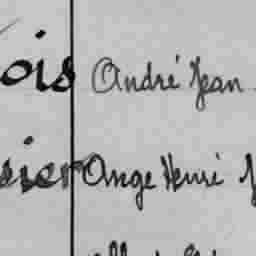 ois André Jean
sier Ange Henri J